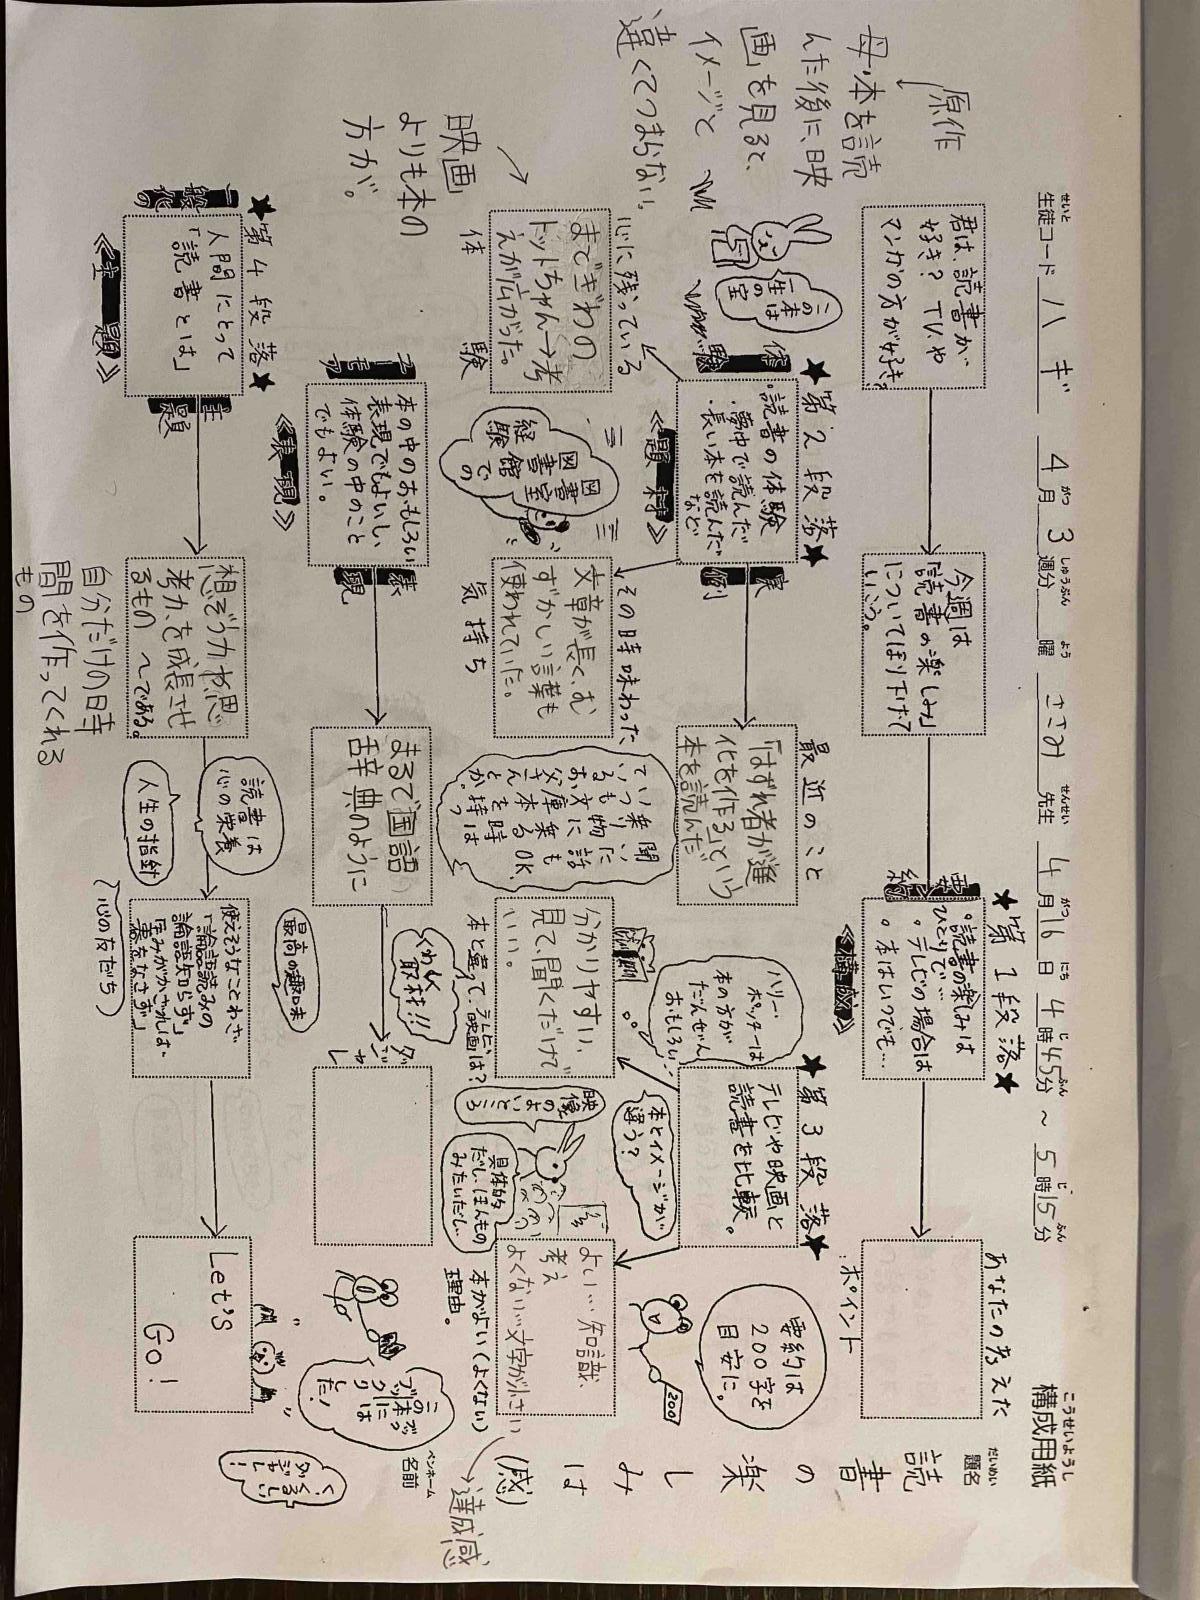 構成用紙
こうせいようし
生徒コード 八ギ 4月3週分 曜 ささみ先生 4月16日4時45分～5時15分
題名
だいめい
読書の楽しみは(感)
ペンネーム
名前
君は、読書が、
好き？TVや
マンガの方が好き？
今週は
「読書の楽しみ」
についてほり下げて
いこう。
★第1段落★
要約
・読書の楽しみは
ひとりで…
・テレビの場合は
・本はいつでも…
《構成》
あなたの考えた
ポイント
要約は
200字を
目安に。
200
★第2段落★
体験
・読書の体験
・夢中で読んだ
・長い本を読んだ
など
実例
《題材》
この本は
一生の
宝
最近のこと
「はずれ者が進
化を作る」という
本を読んだ
★第3段落★
テレビや映画と
読書を比較。
ハリー・
ポッターは
本の方が
だんぜん
おもしろい…
本とイメージが
違う？
心に残っている
まどぎわの
トットちゃん→考
えが広がった。
体験
図書室
図書館での
経験
その時味わった
文章が長く、む
ずかしい言葉も
使われていた。
気持ち
分かりやすい、
見て、聞くだけで
いい。
本と違って、テレビ、映画は？
映像
のよいところ
具体的
だし、ほんもの
みたいだし…
よい…知識、
考え
よくない…文字が小さい
本がよい(よくない)
理由。
達成感
ユーモア
本の中のおもしろい
表現でもよいし
体験の中のこと
でもよい。
表現
《表現》
まるで国語
辞典のように
くわしく
取材!!
ダジャレ
この本には
ブックリ
した！
★第4段落★
一般化の
人間にとって
「読書とは」
主題
《主題》
想ぞう力や思
考力を成長させ
るもの ～である。
自分だけの時
間を作ってくれる
もの
読書は
心の栄養
人生の指針
心の友だち
最高の趣味
使えそうなことわざ
「論語読みの
論語知らず」
Let's
Go!
原作
母・本を読
んた後に、映
画を見ると、
イメージと
違くてつまらない。
映画
よりも本の
方が。